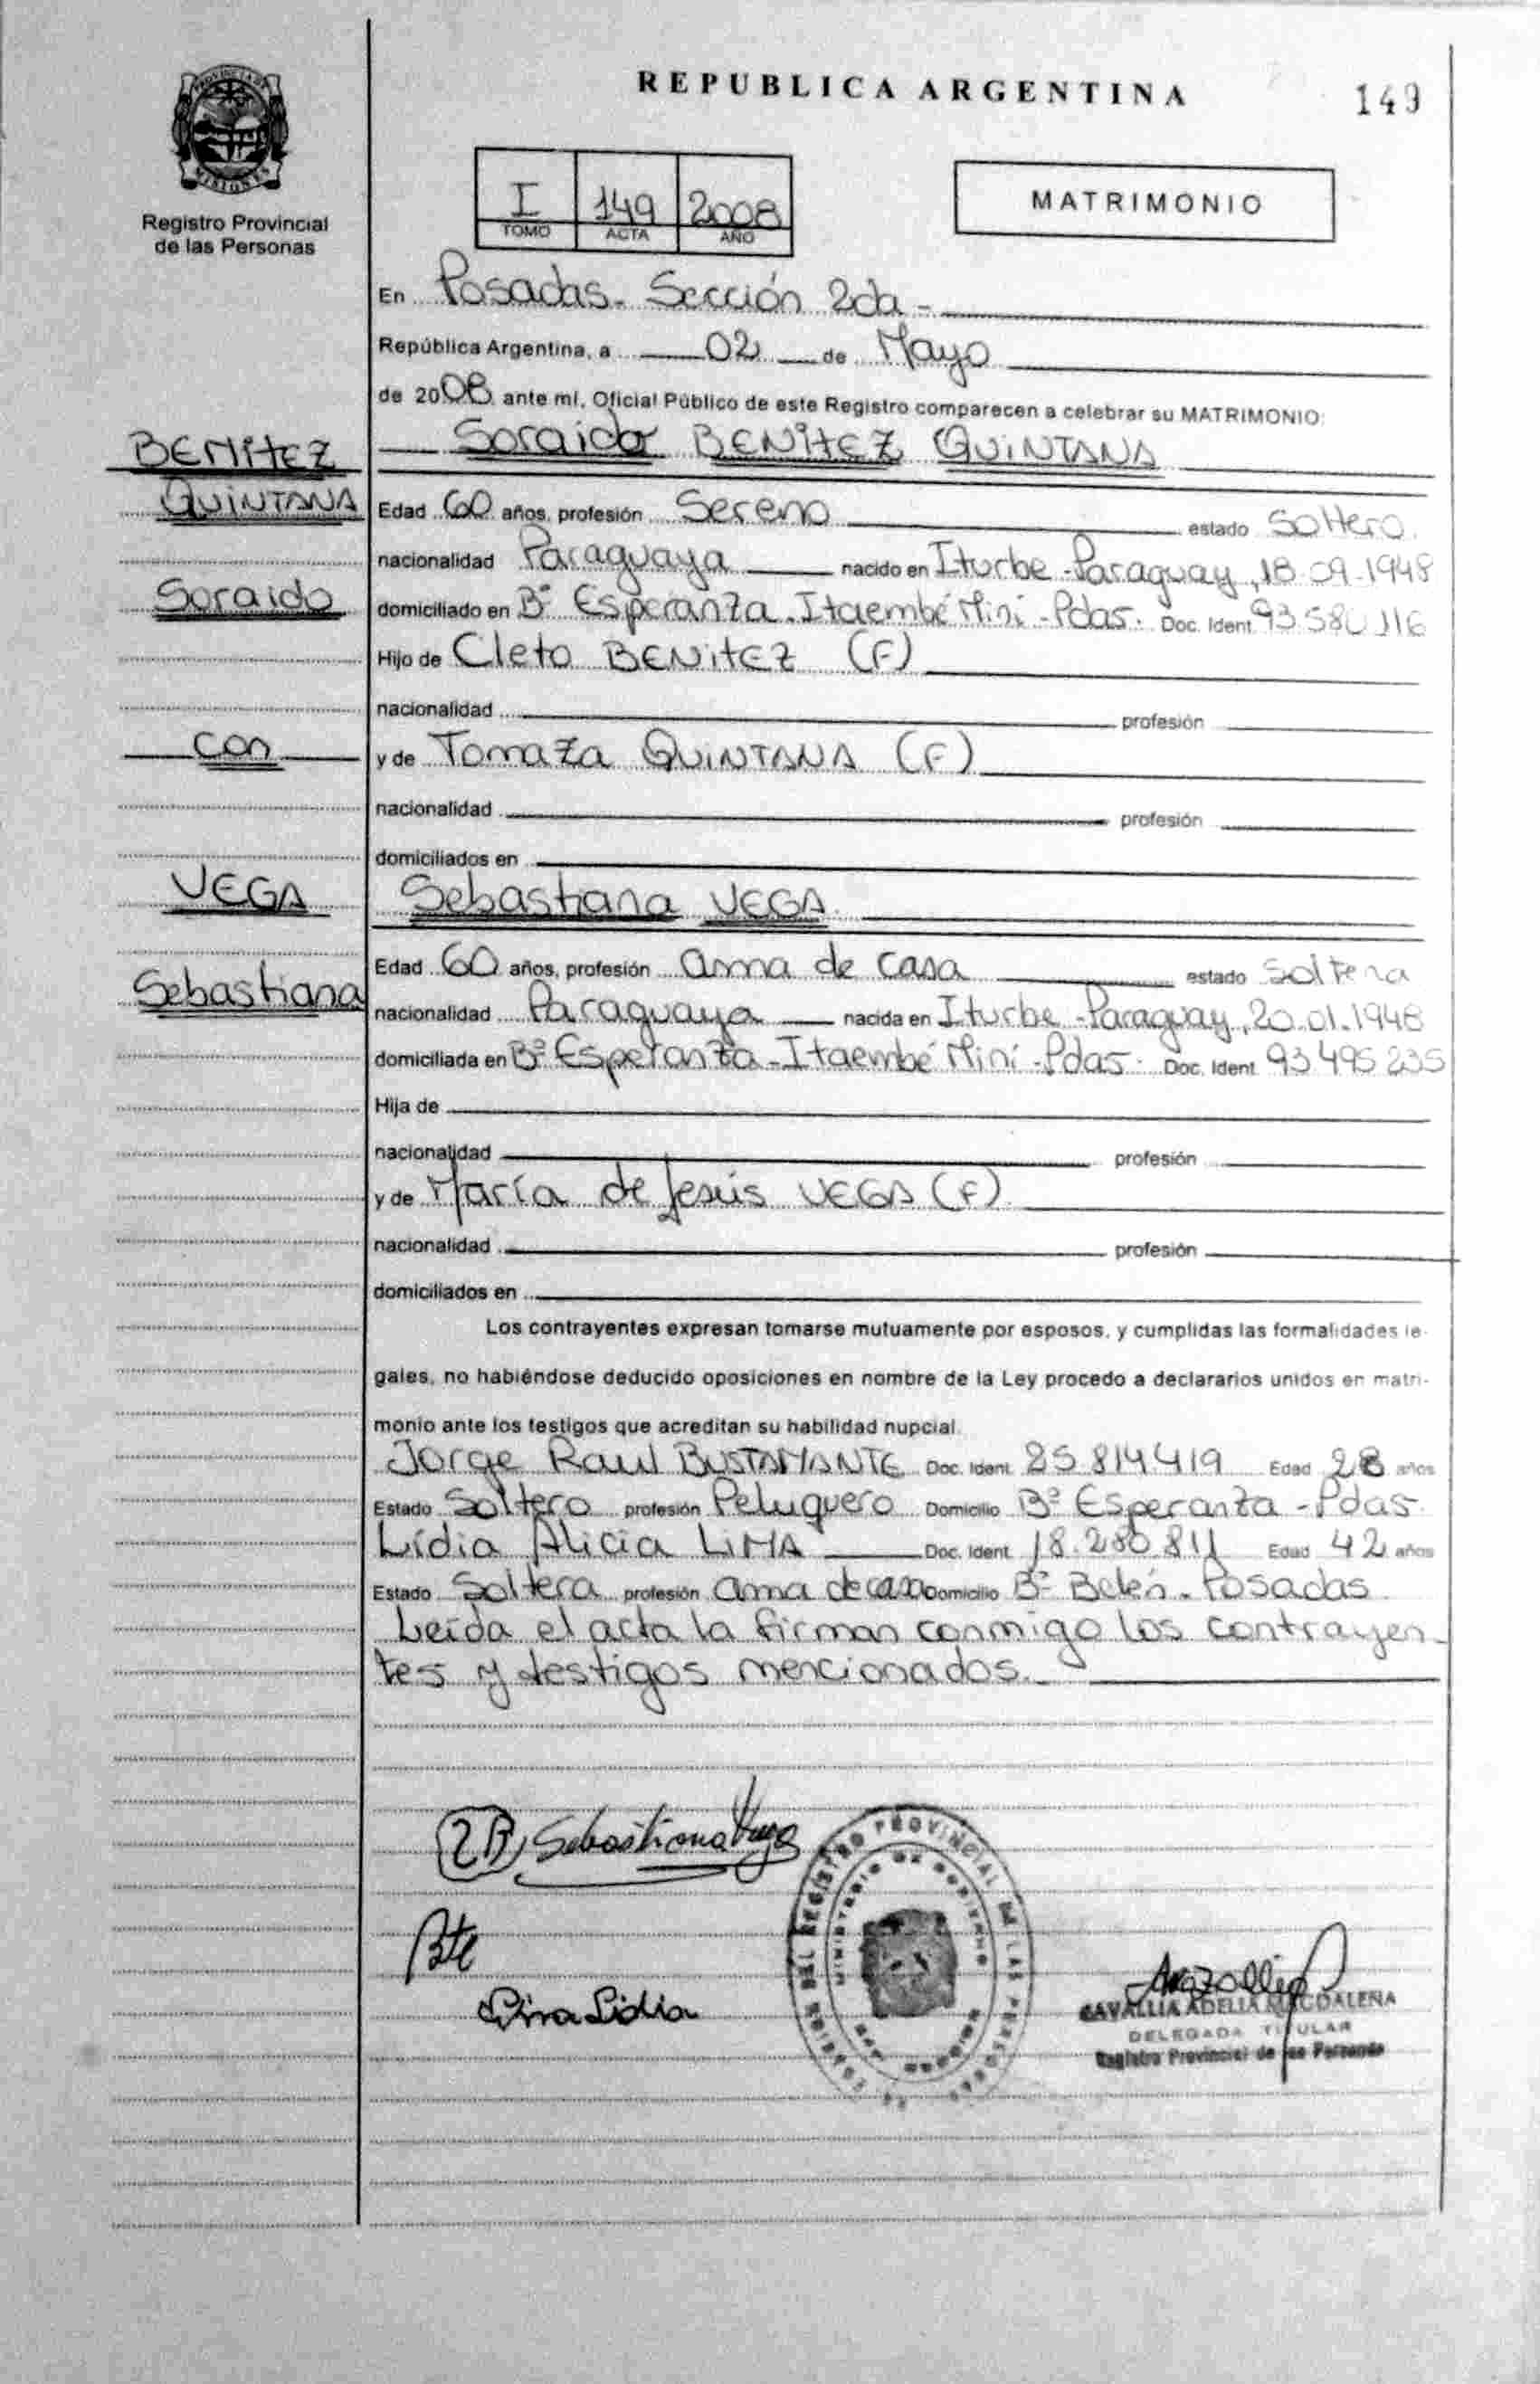 PROVINCIA DE
MISIONES
Registro Provincial
de las Personas
REPUBLICA ARGENTINA
149
I 149 2008
TOMO ACTA AÑO
MATRIMONIO
En Posadas - Sección 2da -
República Argentina, a 02 de Mayo
de 2008 ante mí, Oficial Público de este Registro comparecen a celebrar su MATRIMONIO:
BENITEZ
QUINTANA
Soraido
con
VEGA
Sebastiana
Soraido BENITEZ QUINTANA
Edad 60 años, profesión Sereno estado Soltero.
nacionalidad Paraguaya nacido en Iturbe - Paraguay, 18.09.1948
domiciliado en Bº Esperanza - Itaembé Miní - Pdas. Doc. Ident. 93.580.116
Hijo de Cleto BENITEZ (F)
nacionalidad profesión
y de Tomaza QUINTANA (F)
nacionalidad profesión
domiciliados en
Sebastiana VEGA
Edad 60 años, profesión ama de casa estado Soltera
nacionalidad Paraguaya nacida en Iturbe - Paraguay, 20.01.1948
domiciliada en Bº Esperanza - Itaembé Miní - Pdas. Doc. Ident. 93 495 235
Hija de
nacionalidad profesión
y de María de Jesús VEGA (F)
nacionalidad profesión
domiciliados en
Los contrayentes expresan tomarse mutuamente por esposos, y cumplidas las formalidades le-
gales, no habiéndose deducido oposiciones en nombre de la Ley procedo a declararlos unidos en matri-
monio ante los testigos que acreditan su habilidad nupcial.
Jorge Raul BUSTAMANTE Doc. Ident. 25.814.419 Edad 28 años
Estado Soltero profesión Peluquero Domicilio Bº Esperanza - Pdas.
Lidia Alicia LIMA Doc. Ident. 18.280.811 Edad 42 años
Estado Soltera profesión ama de casa Domicilio Bº Belén - Posadas
Leída el acta la firman conmigo los contrayen-
tes y testigos mencionados.
Sebastiana Vega
Lidia
REGISTRO PROVINCIAL DE LAS PERSONAS
MINISTERIO DE GOBIERNO
CAVALLIA ADELIA MAGDALENA
DELEGADA TITULAR
Registro Provincial de las Personas